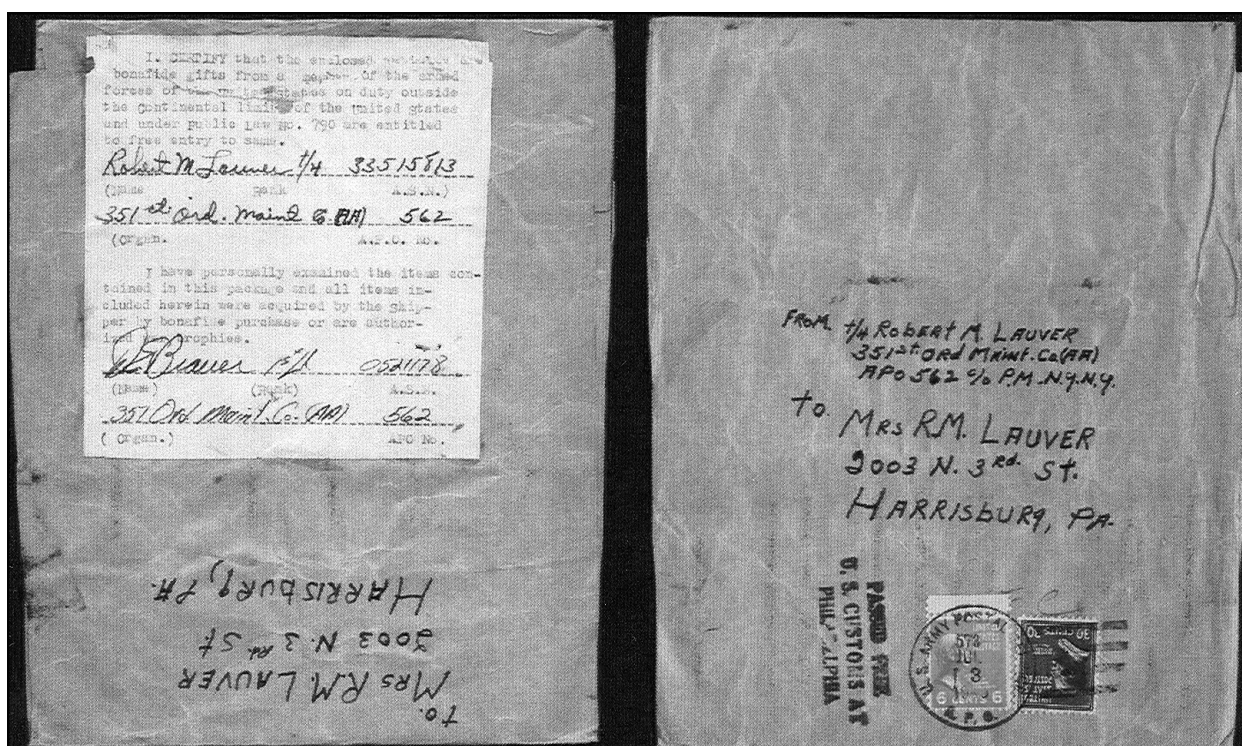 I CERTIFY that the enclosed are
bonafide gifts from a member of the armed
forces of the United States on duty outside
the continental limits of the United States
and under public Law No. 790 are entitled
to free entry to same.
Robert M Lauver T/4 33515813
(Name Rank A.S.N.)
351st Ord. Maint Co (AA) 562
(Organ. A.P.O. No.
I have personally examined the items con-
tained in this package and all items in-
cluded herein were acquired by the ship-
per by bonafide purchase or are author-
ized trophies.
Beaver 0521178
(Name) (Rank) A.S.N.
351 Ord Maint. Co. (AA) 562
( Organ.) APO No.
to.
MRS R.M. LAUVER
2003 N. 3 Rd St
HARRISBURG, PA.
FROM. T/4 ROBERT M. LAUVER
351st ORd MAINT. Co (AA)
APO 562 c/o P.M. N.Y. N.Y.
to.
MRS R.M. LAUVER
2003 N. 3 Rd. St.
HARRISBURG, PA.
PASSED FREE
U. S. CUSTOMS AT
PHILADELPHIA
U. S. ARMY POSTAL
A. P. O.
JUL
3
6 CENTS 6
30 CENTS 30